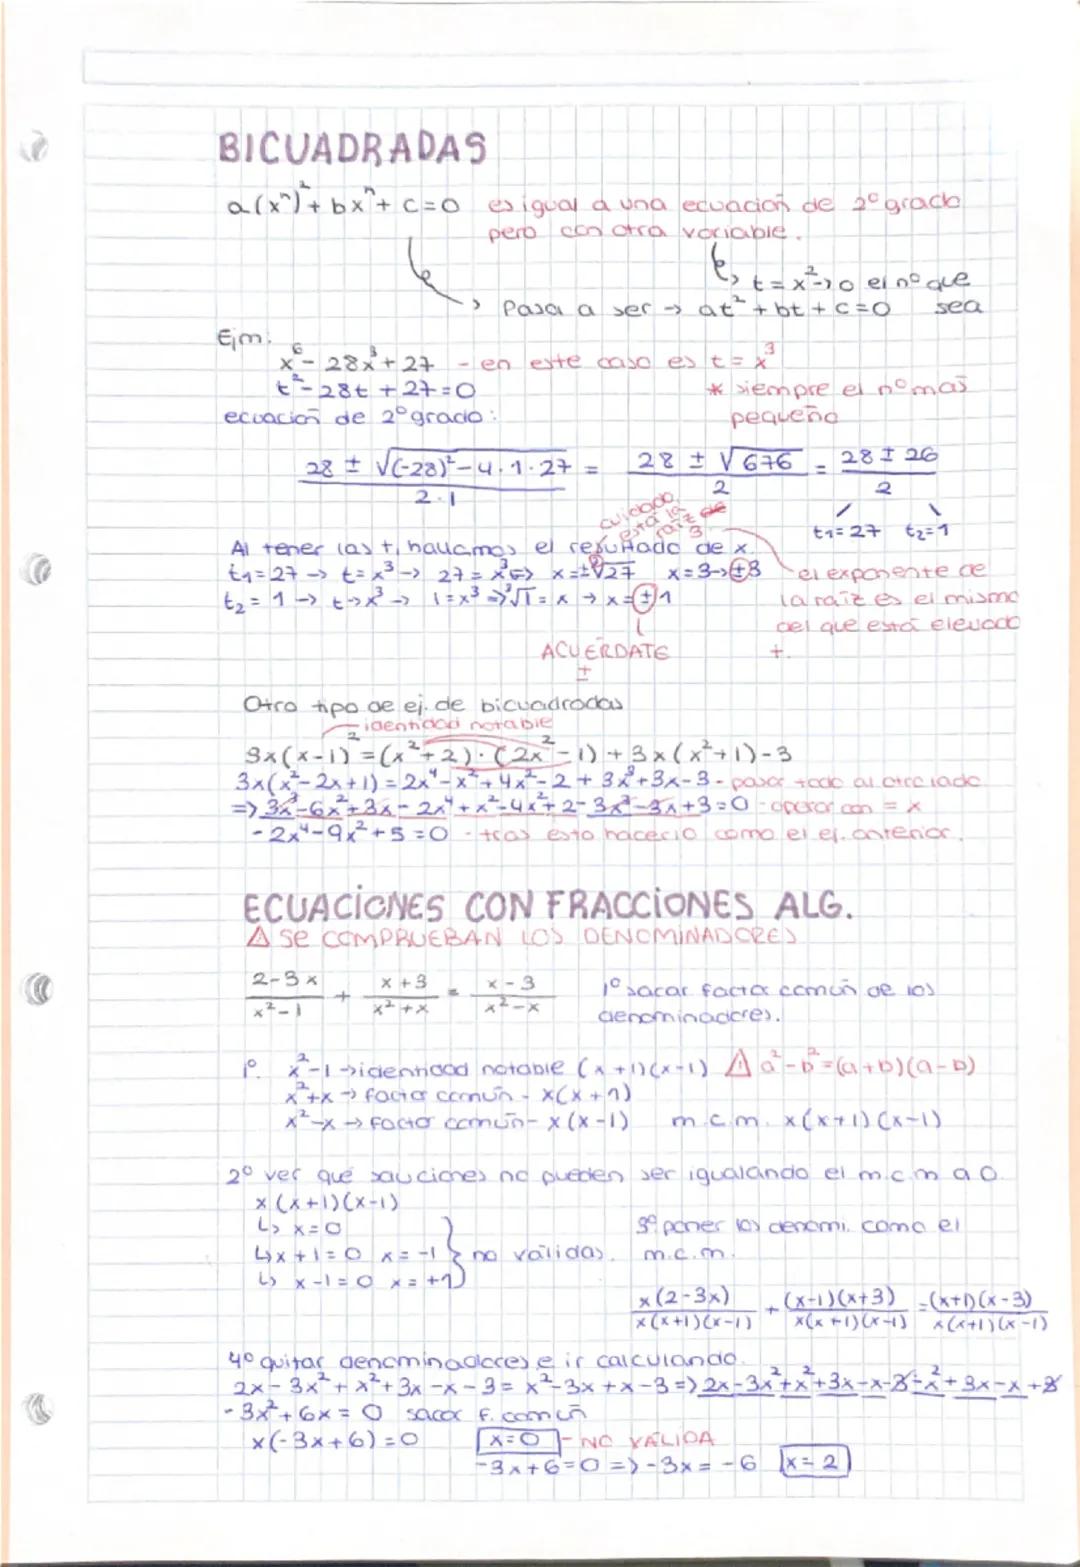 BICUADRADAS
a(xⁿ)² + bxⁿ + c = 0 es igual a una ecuación de 2º grado
pero con otra variable.
t = x² → o el nº que
sea
Pasa a ser → at² + bt + c = 0
Ejm:
x⁶ - 28x³ + 27 - en este caso es t = x³
t² - 28t + 27 = 0
* siempre el nº más
pequeño
ecuación de 2º grado:
28 ± √(-28)² - 4·1·27 / 2·1 = 28 ± √676 / 2 = 28 ± 26 / 2
t₁ = 27 t₂ = 1
cuidado
esta la
raíz de
3
Al tener las t, hallamos el resultado de x.
t₁ = 27 → t = x³ → 27 = x³ => x = ±³√27 x = 3 → ±3
t₂ = 1 → t → x³ → 1 = x³ => ³√1 = x → x = ±1
el exponente de
la raíz es el mismo
del que está elevado
t.
ACUÉRDATE
±
Otro tipo de ej. de bicuadradas
identidad notable
3x(x-1)² = (x²+2)·(2x²-1) + 3x(x²+1) - 3
3x(x²-2x+1) = 2x⁴ - x² + 4x² - 2 + 3x³ + 3x - 3 - pasar todo al otro lado
=> 3x³ - 6x² + 3x - 2x⁴ + x² - 4x² + 2 - 3x³ - 3x + 3 = 0 - operar con = x
-2x⁴ - 9x² + 5 = 0 - tras esto hacerlo como el ej. anterior.
ECUACIONES CON FRACCIONES ALG.
⚠ SE COMPRUEBAN LOS DENOMINADORES
2-3x / x²-1 + x+3 / x²+x = x-3 / x²-x
1º sacar factor común de los
denominadores.
1º. x²-1 → identidad notable (x+1)(x-1) ⚠ a²-b² = (a+b)(a-b)
x²+x → factor común - x(x+1)
x²-x → factor común - x(x-1) m.c.m. x(x+1)(x-1)
2º ver qué sauciones no pueden ser igualando el m.c.m a 0.
x(x+1)(x-1)
↳ x = 0
↳ x+1 = 0 x = -1 } no válidas.
↳ x-1 = 0 x = +1
3º poner los denomi. como el
m.c.m.
x(2-3x) / x(x+1)(x-1) + (x-1)(x+3) / x(x+1)(x-1) = (x+1)(x-3) / x(x+1)(x-1)
4º quitar denominadores e ir calculando.
2x - 3x² + x² + 3x - x - 3 = x² - 3x + x - 3 => 2x - 3x² + x² + 3x - x - 3 - x² + 3x - x + 3
-3x² + 6x = 0 sacar f. común
x(-3x+6) = 0 x = 0 - NO VÁLIDA
-3x+6 = 0 => -3x = -6 x = 2